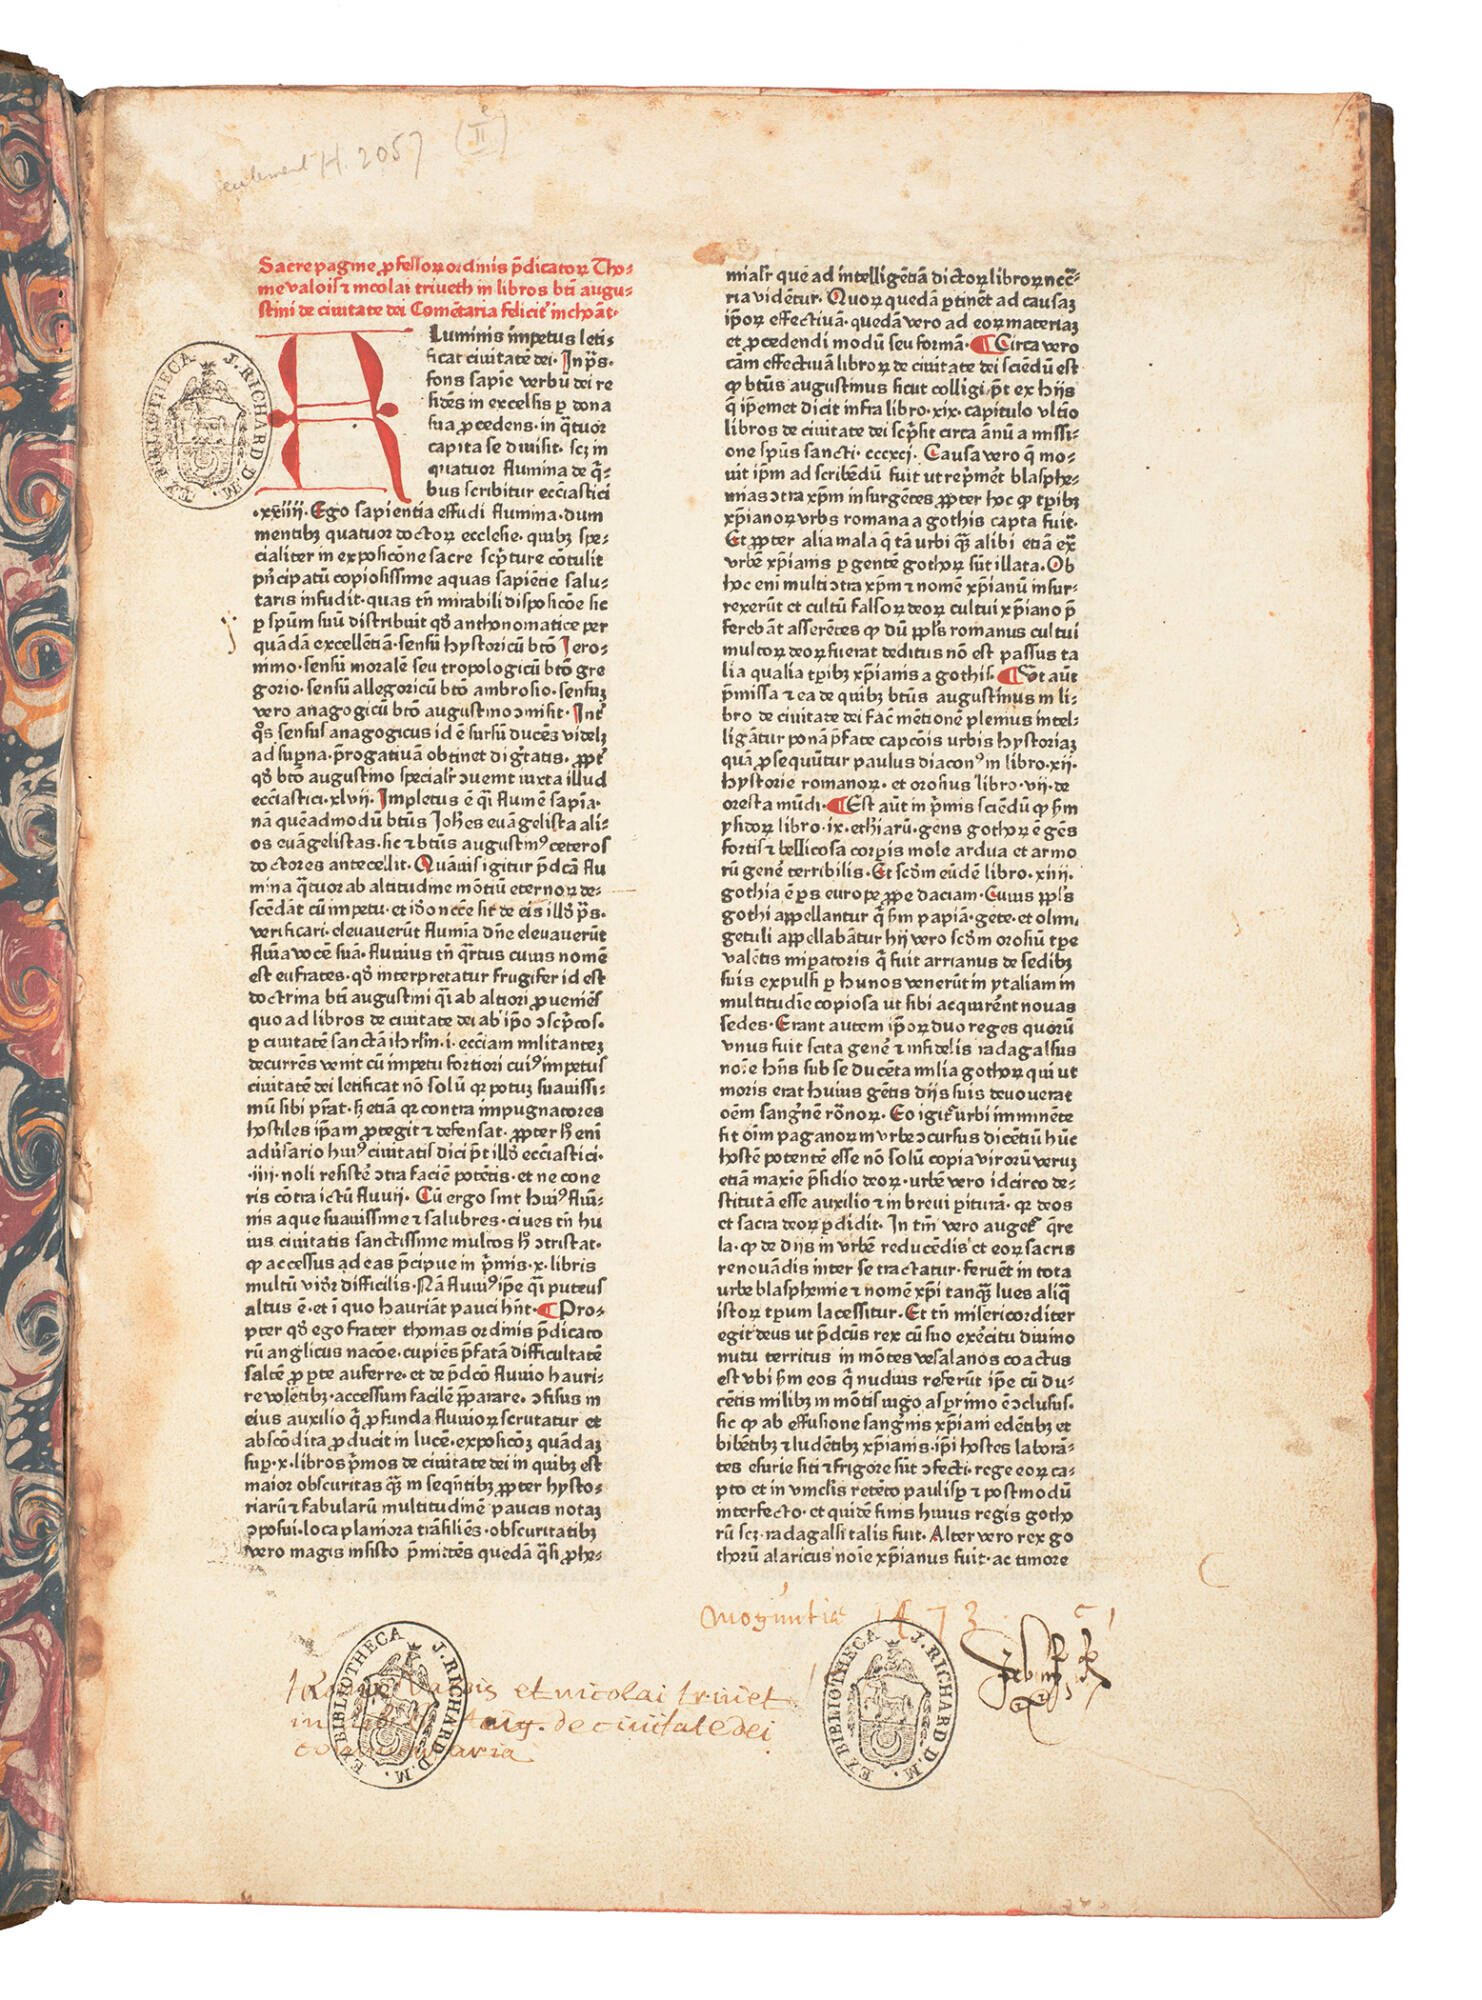 seulement H. 2057 (II)
Sacre pagine ꝓfessoꝝ ordinis p̄dicatoꝝ Tho⸗
me valois ⁊ nicolai triueth in libros bt̄i augu⸗
stini de ciuitate dei Comētaria felicit̓ inchoāt·
EX BIBLIOTHECA J. RICHARD D.M.
Luminis īmpetus leti⸗
ficat ciuitatē dei· In p̄s·
fons sapīe verbū dei re
sidēs in excelsis ꝑ dona
sua ꝓcedens· in q̄tuor
capita se diuisit· scꝫ in
quatuor flumina de q̄⸗
bus scribitur ecc̄iastici
·xxiiii· Ego sapientia effudi flumina· dum
mentibꝫ quatuor doctoꝝ ecclesie· quibꝫ spe⸗
cialiter in exposicōne sacre scp̄ture cōtulit
pn̄cipatū copiosissime aquas sapiētie salu⸗
taris infudit· quas tn̄ mirabili disposicōe sic
ꝑ sp̄um suū distribuit qd̓ anthonomatice per
quādā excellētiā· sensū hystoricū btō Jero⸗
nimo· sensū moralē seu tropologicū btō gre
gorio· sensū allegoricū btō ambrosio· sensuꝫ
vero anagogicū btō augustino ↄmisit· Int̓
q̄s sensus anagogicus id ē sursū ducēs videlꝫ
ad sup̄na· p̄rogatiuā obtinet dig̓tatis· ꝓpt̓
qd̓ btō augustino specialr̓ ↄuenit iuxta illud
ecc̄iastici·xlvii· Impletus ē q̄i flumē sapīa·
nā quēadmodū bt̄us Joh̄es euāgelista ali⸗
os euāgelistas· sic ⁊ bt̄us augustinꝰ ceteros
doctores antecellit· Quāuis igitur p̄dcā flu
mina q̄tuor ab altitudine mōtiū eternoꝝ de⸗
scēdāt cū impetu· et iđo nccē sit de eis illđ p̄s·
verificari· eleuauerūt flumīa dn̄e eleuauerūt
flūīa vocē suā· fluuius tn̄ q̄rtus cuius nomē
est eufrates· qd̓ interpretatur frugifer id est
doctrina bt̄i augustini q̄i ab altiori ꝓueniēs
quo ad libros de ciuitate dei ab ip̄o ↄscp̄tos·
ꝑ ciuitatē sanctā ih̄rlm̄· i· ecc̄iam militanteꝫ
decurrēs venit cū impetu fortiori cuiꝰ impetus
ciuitatē dei letificat nō solū qꝛ potuꝫ suauissi⸗
mū sibi p̄stat· sꝫ etiā qꝛ contra impugnatores
hostiles ip̄am ꝓtegit ⁊ defensat· ꝓpter hͦ eni
aduīsario huiꝰ ciuitatis dici pt̄ illđ ecc̄iastici·
·iiii· noli resistē ↄtra faciē potētis· et ne cone
ris cōtra ictū fluuij· Cū ergo sint huiꝰ flūi⸗
nis aque suauissime ⁊ salubres· ciues tn̄ hu
ius ciuitatis sanctissime multos hͦ ↄtristat·
ꝙ accessus ad eas p̄cipue in p̄mis·x·libris
multū vid̓r difficilis· Nā fluuiꝰ ip̄e q̄i puteus
altus ē· et ī quo hauriāt pauci hn̄t· ¶ Pro⸗
pter qd̓ ego frater thomas ordinis p̄dicato
rū anglicus nacōe· cupiēs p̄fatā difficultatē
saltē ꝓ ꝑte auferre· et de p̄dcō fluuio hauri⸗
re volētibꝫ· accessum facilē p̄parare· ↄfisus in
eius auxilio q̄ ꝓfunda fluuioꝝ scrutatur et
abscōdita ꝓducit in lucē· exposicōꝫ quādaꝫ
sup̄·x·libros p̄mos de ciuitate dei in quibꝫ est
maior obscuritas qꝫ in seqn̄tibꝫ ꝓpter hysto⸗
riarū ⁊ fabularū multitudinē paucis notaꝫ
ↄposui· loca planiora trāsiliēs· obscuritatibꝫ
vero magis insisto p̄mittēs quedā q̄si ꝓhe⸗
mialr̓ que ad intelligētiā dictoꝝ libroꝝ necc̄⸗
ria vidētur· Quoꝝ quedā ꝑtinēt ad causaꝫ
ip̄oꝝ effectiuā· quedā vero ad eoꝝ materiaꝫ
et ꝓcedendi modū seu formā· ¶ Circa vero
cām effectiuā libroꝝ de ciuitate dei sciēdū est
ꝙ bt̄us augustinus sicut colligi pt̄ ex hijs
q̄ ip̄emet dicit infra libro·xix·capitulo vltīo
libros de ciuitate dei scp̄sit circa ānū a missi⸗
one sp̄us sancti·cccxcj· Causa vero q̄ mo⸗
uit ip̄m ad scribēdū fuit ut rep̄mēt blasphe⸗
mias ↄtra xp̄m insurgētes ꝓpter hoc ꝙ tp̄ibꝫ
xp̄ianoꝝ vrbs romana a gothis capta fuit·
Et ꝓpter alia mala q̄ tā urbi qꝫ alibi etiā ex̄
vrbē xp̄ianis ꝑ gentē gothoꝝ sūt illata· Ob
hoc eni multi ↄtra xp̄m ⁊ nomē xp̄ianū insur⸗
rexerūt et cultū falsoꝝ deoꝝ cultui xp̄iano p̄
ferebāt asserētes ꝙ dū ppl̄s romanus cultui
multoꝝ deoꝝ fuerat deditus nō est passus ta
lia qualia tp̄ibꝫ xp̄ianis a gothis· ¶ Vt aūt
p̄missa ⁊ ea de quibꝫ bt̄us augustinus in li⸗
bro de ciuitate dei fac̄ mētionē plenius intel⸗
ligātur ponā p̄fate capcōis urbis hystoriaꝫ
quā ꝓsequūtur paulus diaconꝰ in libro·xii·
hystorie romanoꝝ· et orosius libro·vii·de
oresta mūdi· ¶ Est aūt in p̄mis sciēdū ꝙ sm̄
ysidoꝝ libro·ix·ethiarū· gens gothoꝝ ē gēs
fortis ⁊ bellicosa corpis mole ardua et armo
rū genē terribilis· Et scd̓m eūdē libro·xiiij·
gothia ē ꝑs europe ꝓpe daciam· Cuius ppl̄s
gothi appellantur q̄ sm̄ papiā· gete· et olim
getuli appellabātur hij vero scd̓m orosiū tp̄e
valētis imꝑatoris q̄ fuit arrianus de sedibꝫ
suis expulsi ꝑ hunos venerūt in ytaliam in
multitudīe copiosa ut sibi acquirēnt nouas
sedes· Erant autem ip̄oꝝ duo reges quorū
vnus fuit scita genē ⁊ infidelis radagaisus
noīe hn̄s sub se ducēta milia gothoꝝ qui ut
moris erat huius gētis dijs suis deuouerat
oēm sang̓nē rōnoꝝ· Eo igit̓ urbi imminēte
fit oīm paganoꝝ in vrbe ↄcursus dicētiū hūc
hostē potentē esse nō solū copia virorū veruꝫ
etiā maxīe p̄sidio deoꝝ· urbē vero idcirco de⸗
stitutā esse auxilio ⁊ in brevi ꝑiturā· qꝛ deos
et sacra deoꝝ ꝑdidit· In tm̄ vero auget̓ q̄re
la· ꝙ de dijs in vrbē reducēdis et eoꝝ sacris
renouādis inter se tractatur· feruēt in tota
urbe blasphemie ⁊ nomē xp̄i tanqꝫ lues aliq̄
istoꝝ tp̄um lacessitur· Et tn̄ misericorditer
egit deus ut p̄dcūs rex cū suo exēcitu diuino
nutu territus in mōtes vesalanos coactus
est vbi sm̄ eos q̄ nudius referūt ip̄e cū du⸗
cētis milibꝫ in mōtis iugo asꝑrimo ē ↄclusus·
sic ꝙ ab effusione sang̓nis xp̄iani edētibꝫ et
bibētibꝫ ⁊ ludētibꝫ xp̄ianis· ip̄i hostes laborā⸗
tes esurie siti ⁊ frigore sūt ↄfecti· rege eoꝝ ca⸗
pto et in vinclis retēto paulisꝑ ⁊ postmodū
interfecto· et quidē finis huius regis gotho
rū scꝫ· radagaisi talis fuit· Alter vero rex go
thorū alaricus noīe xp̄ianus fuit· ac timore
Moguntiæ 1473
Thomæ Valois et nicolai trivet
in libros Aug. de civitate dei
commentaria
EX BIBLIOTHECA J. RICHARD D.M.
EX BIBLIOTHECA J. RICHARD D.M.